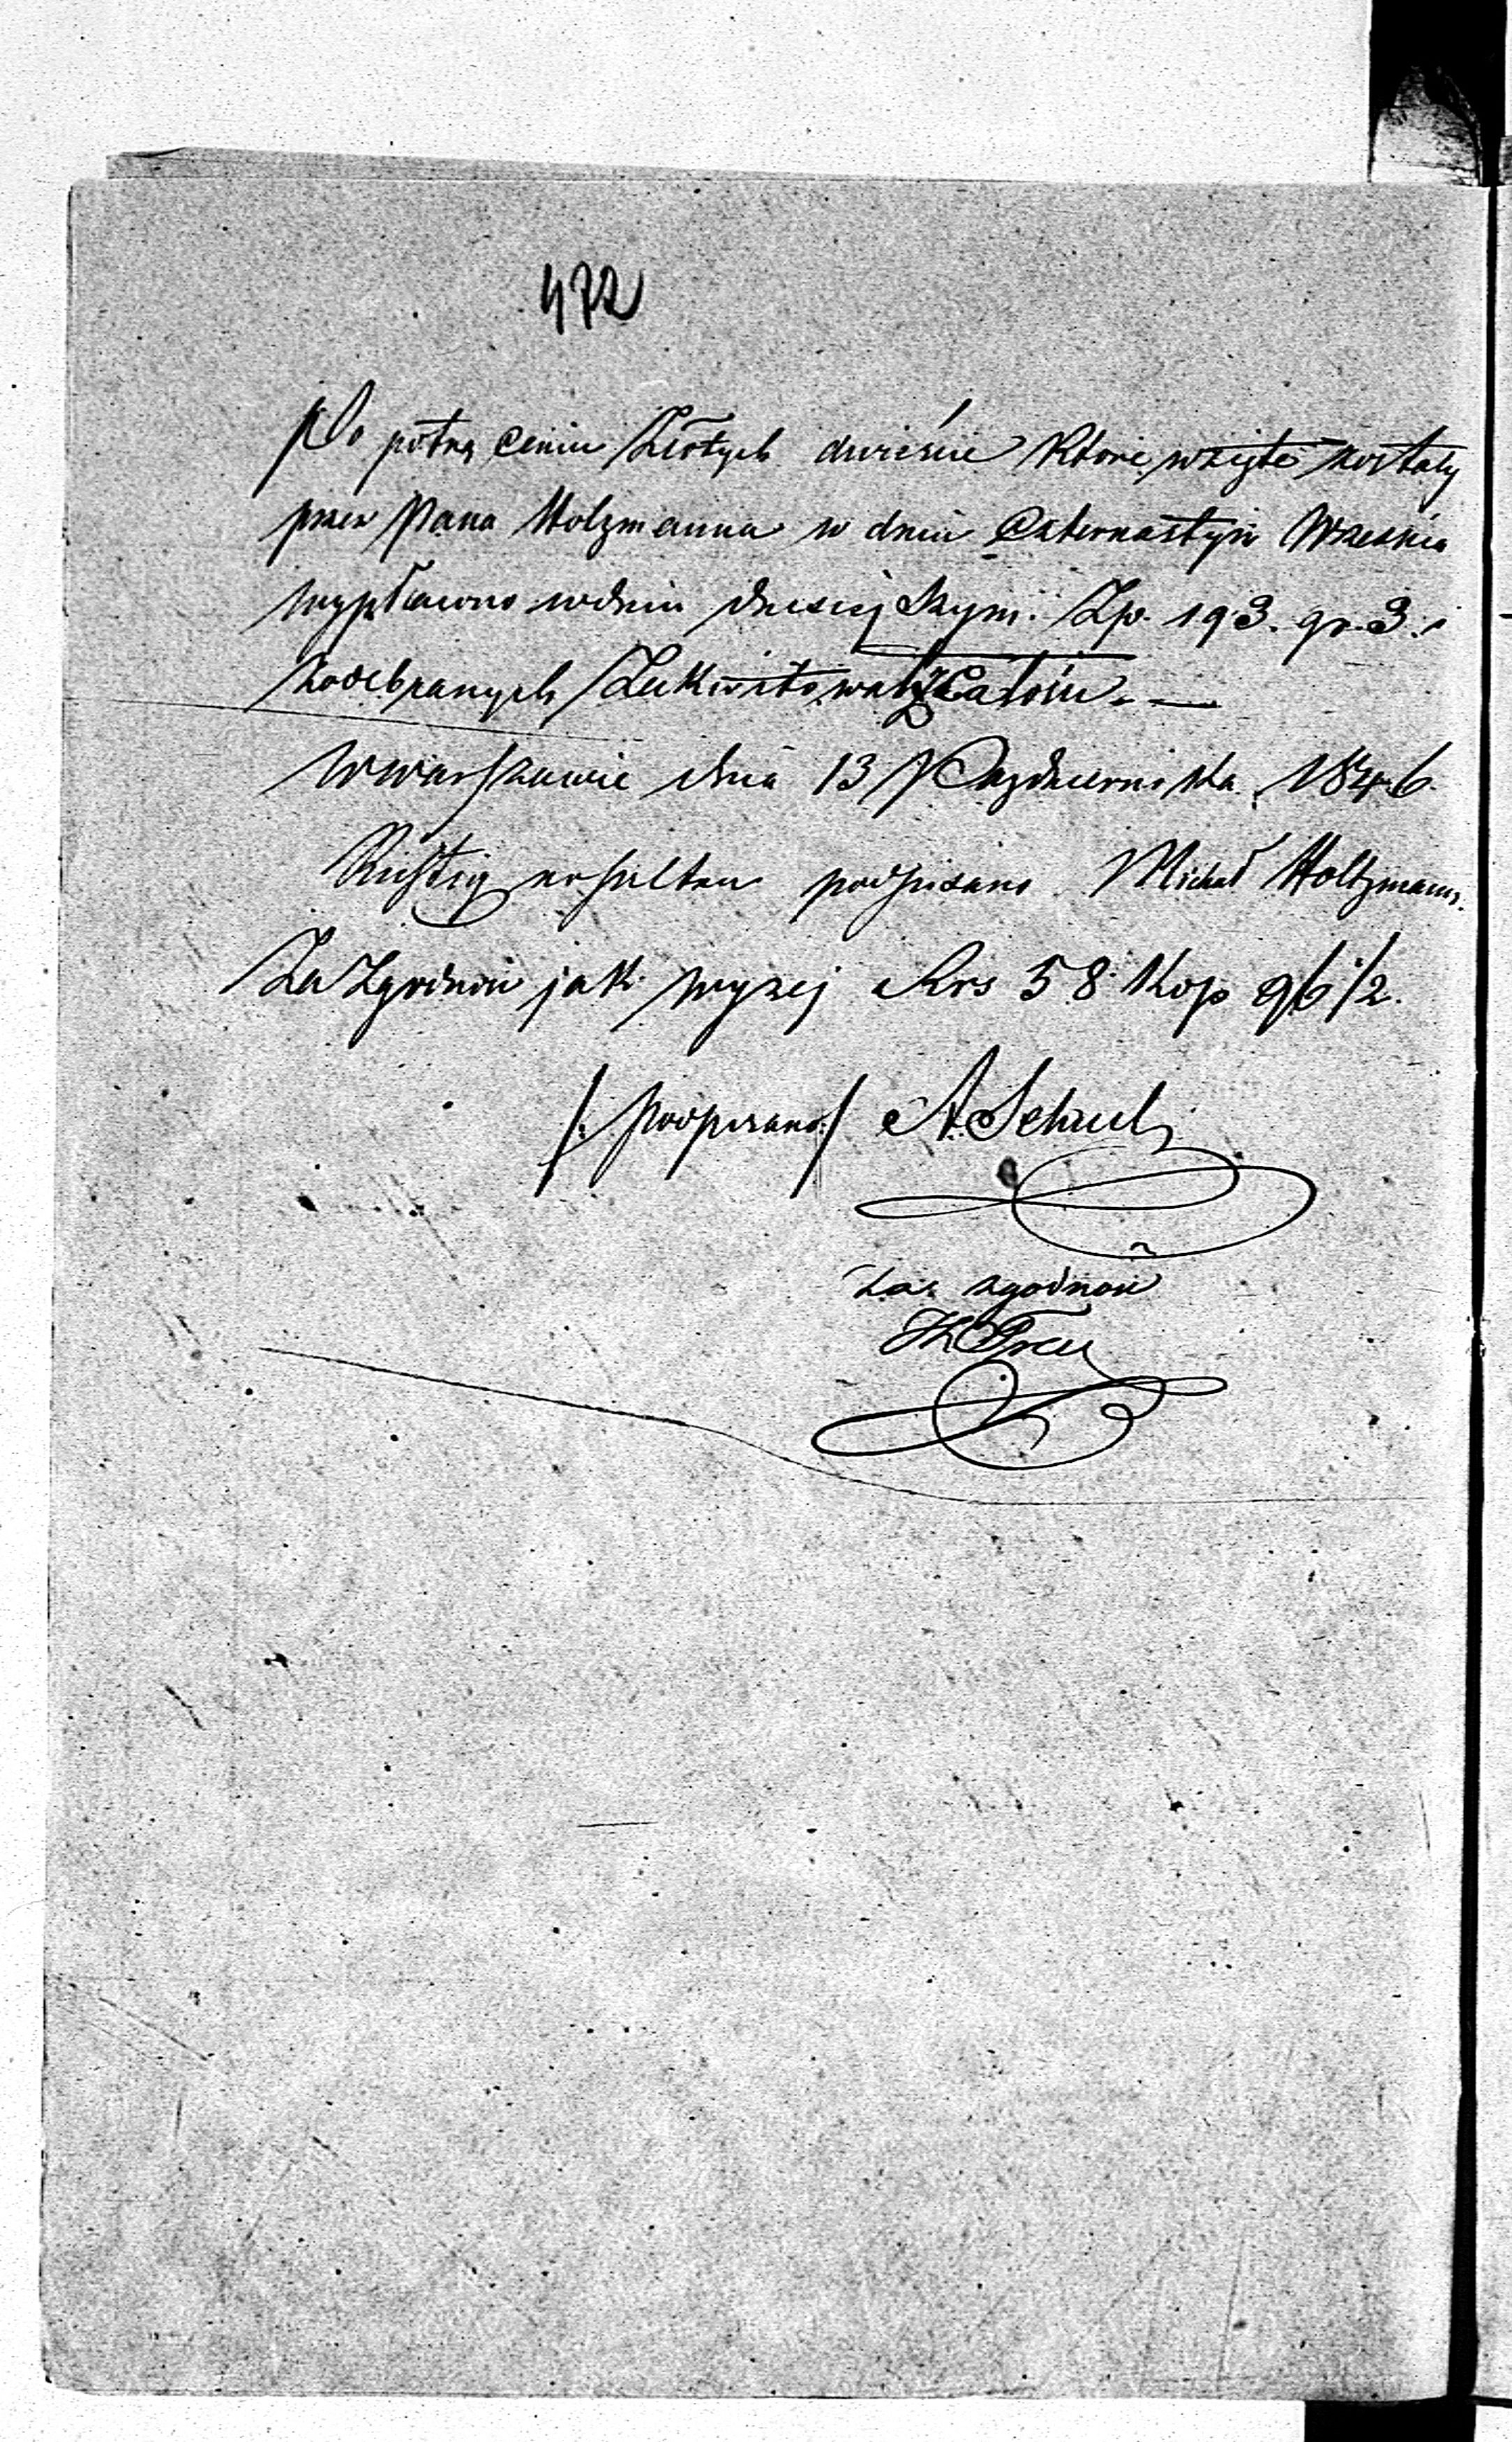 472
Po potrą ceniu Złotych dwieście które wzięte zostały
przez Pana Holzmanna w dniu Czternastym Września
wypłacono wdniu dzisiejszym Zp. 193. gr. 3. i
zodebranych Zakwitował z Całości. —
w Warszawie dnia 13 Października 1846.
Richtig erhalten podpisano Michał Holtzmann.
Za Zgodność jak wyżej Rrs 58 Kop 96 1/2.
/: podpisano :/ A. Schul
za zgodność